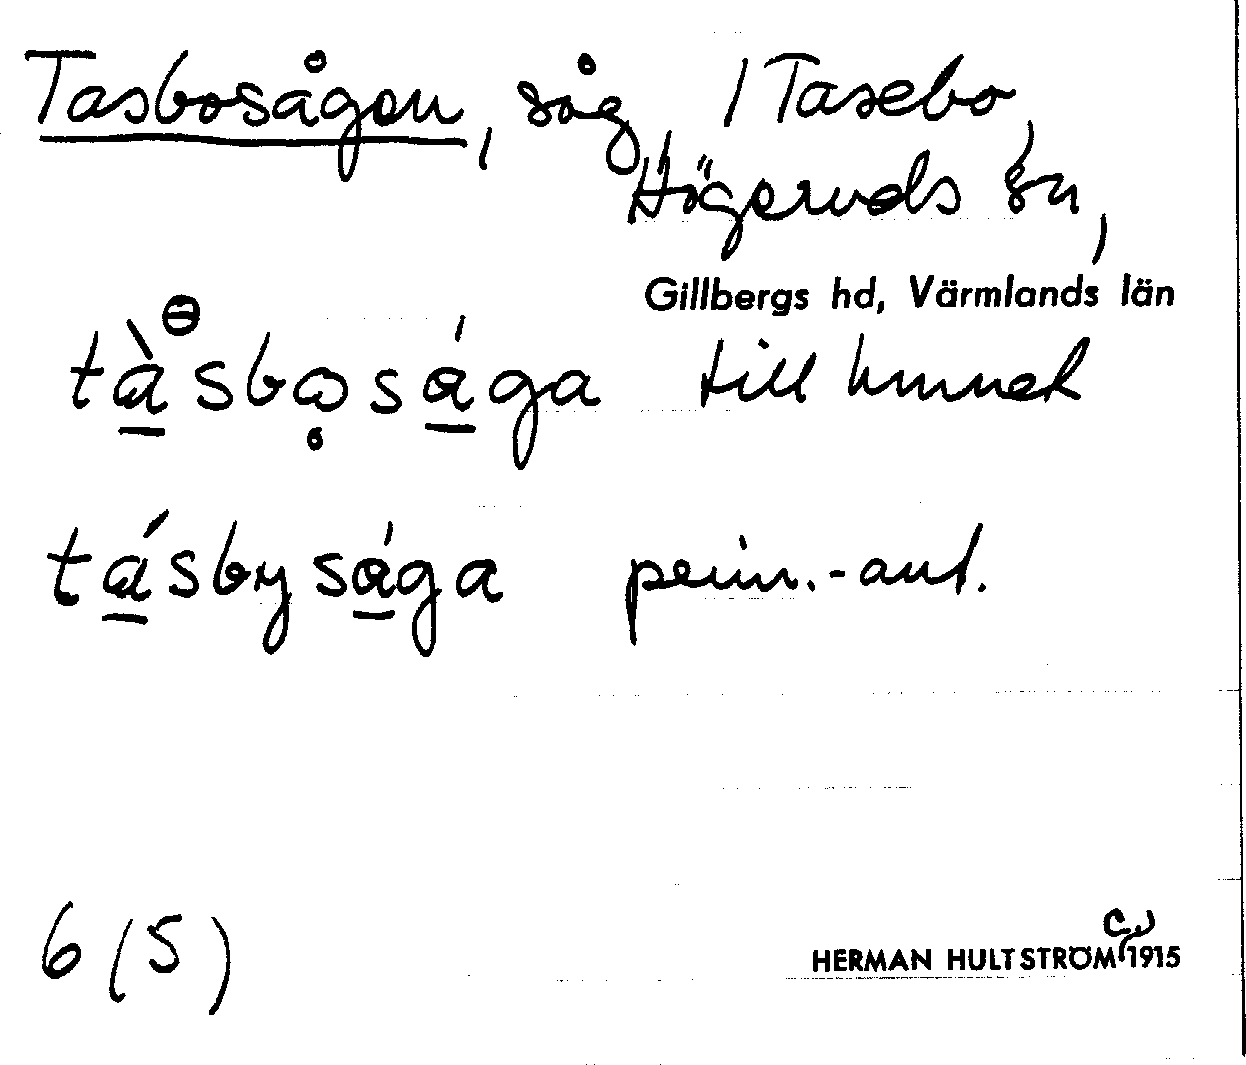 Tasbosågen, såg, i Tasebo,
Högeruds sn,
Gillbergs hd, Värmlands län
tàsbo̥sága
tásbysága penn.-ant.
6 (5)
HERMAN HULTSTRÖM c. 1915